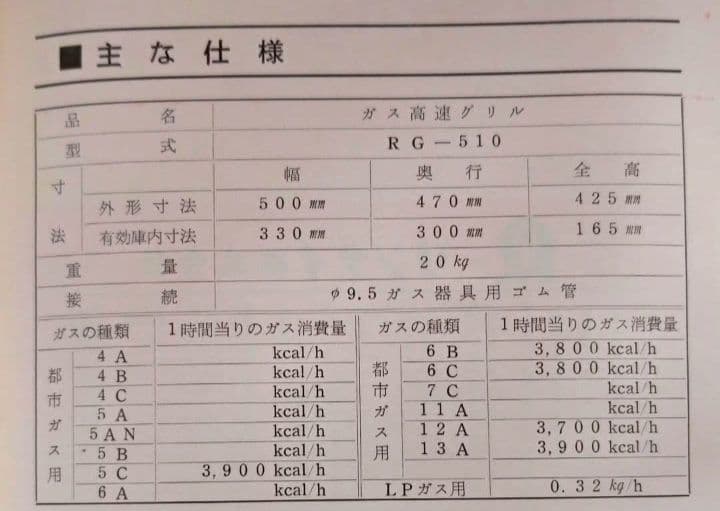 ■主な仕様
品名 ガス高速グリル
型式 RG－510
寸法 幅 奥行 全高
外形寸法 500㎜ 470㎜ 425㎜
有効庫内寸法 330㎜ 300㎜ 165㎜
重量 20㎏
接続 φ9.5ガス器具用ゴム管
ガスの種類 1時間当りのガス消費量 ガスの種類 1時間当りのガス消費量
都市ガス用 4A kcal/h 都市ガス用 6B 3,800kcal/h
4B kcal/h 6C 3,800kcal/h
4C kcal/h 7C kcal/h
5A kcal/h 11A kcal/h
5AN kcal/h 12A 3,700kcal/h
5B kcal/h 13A 3,900kcal/h
5C 3,900kcal/h
6A kcal/h LPガス用 0.32㎏/h